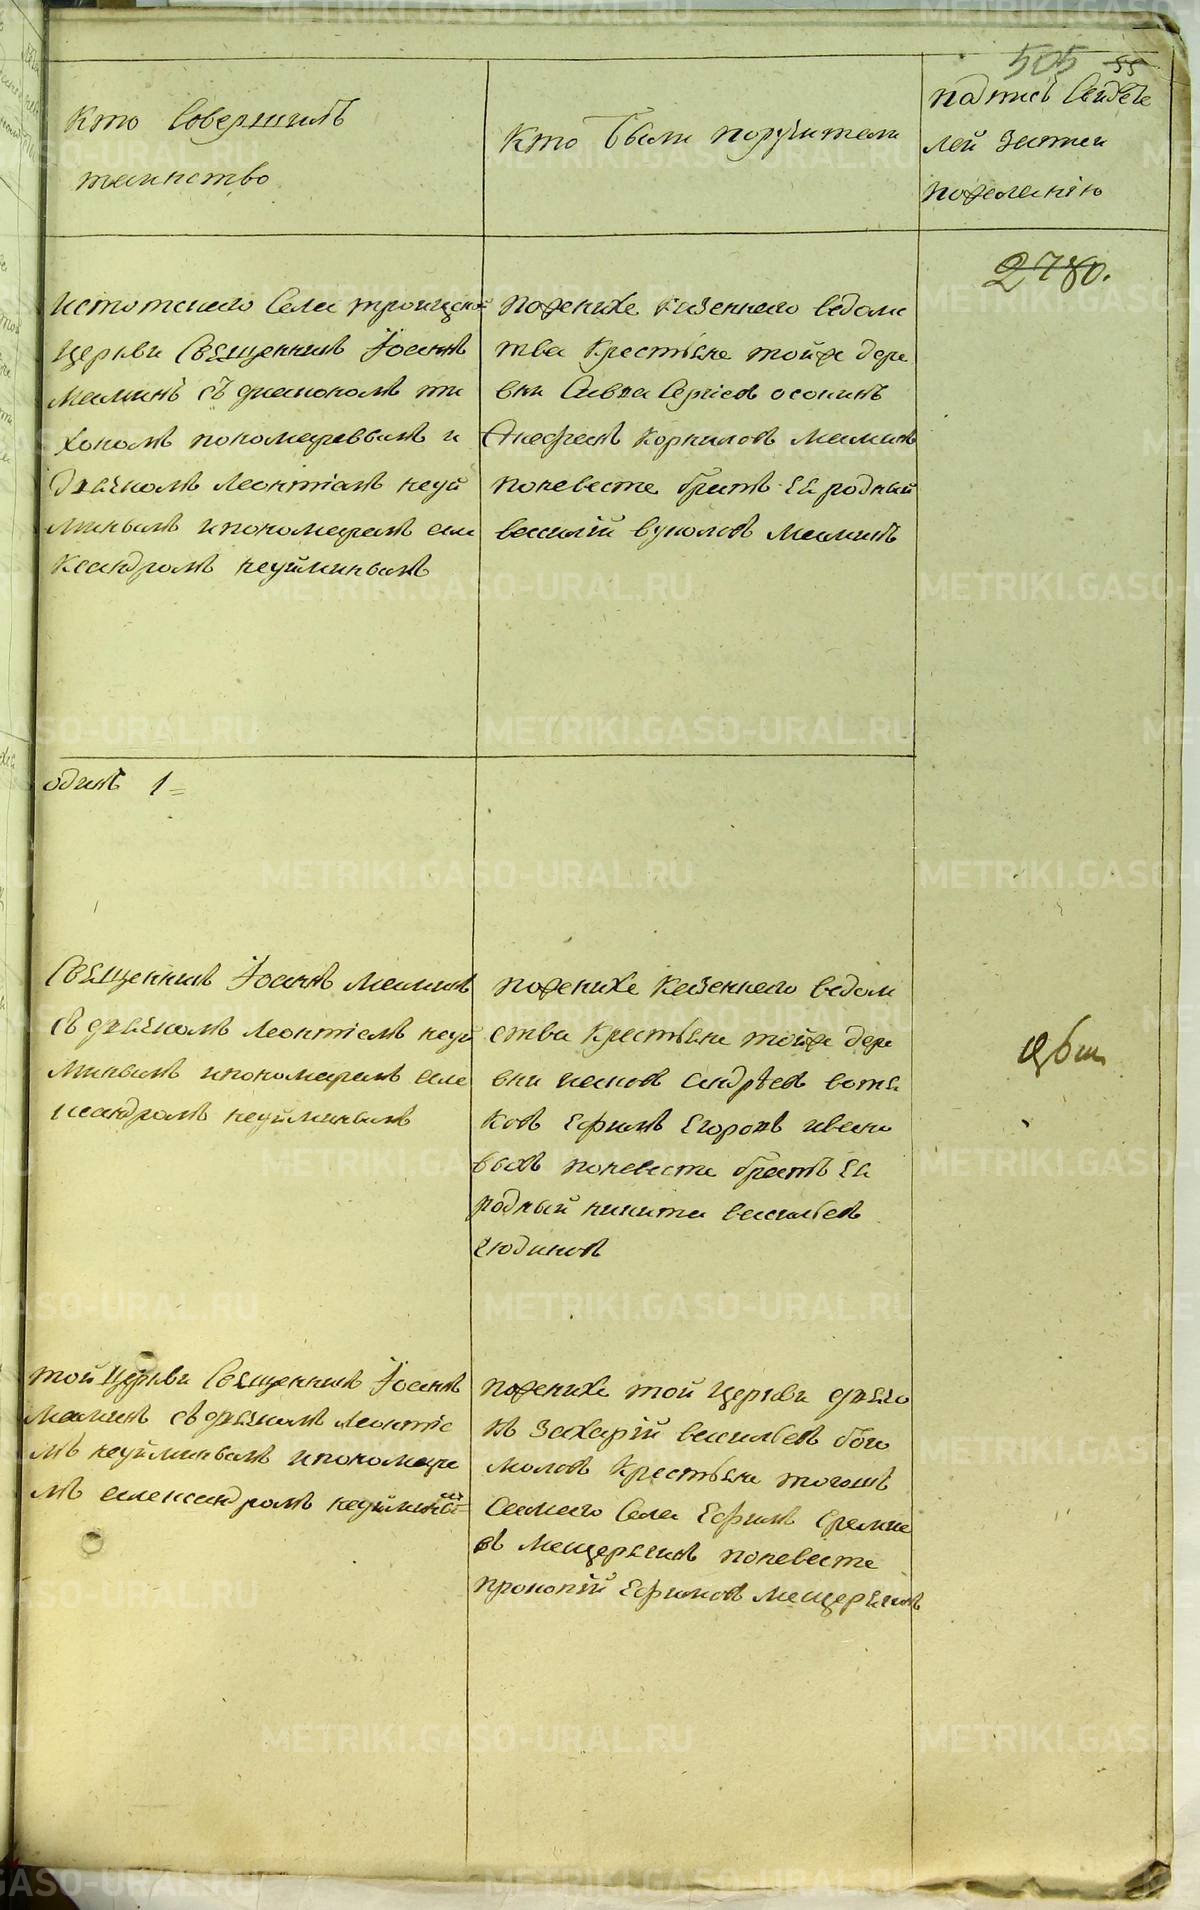 505 55
Кто Совершилъ
таинство
Кто были поручители
подпись Свидѣте
лей записи
пожеланію
2780.
Истотского Села троицкой
Церкви Священникъ Іоаннъ
Маминъ съ диакономъ ти
хономъ пономаревымъ и
дьячкомъ Леонтіемъ неуй
минымъ ипономаремъ але
ксандромъ неуйминымъ
поженихе казеннаго ведомс
тва Крестьяне тойже дере
вни Савва Сергеевъ осонинъ
Корниловъ Маминъ
поневесте братъ Ея родный
василій вуколовъ Маминъ
одинъ 1=
Священникъ Іоаннъ Маминъ
съ дьячкомъ Леонтіемъ неуй
минымъ ипономаремъ але
ксандромъ неуйминымъ
поженихе Казеннаго ведом
ства Крестьяне тойже дере
вни андрѣевъ вотя
ковъ Ефимъ Егоровъ ивано
выхъ поневесте братъ Ея
родный никита васильевъ
Юдиновъ
тойЦеркви Священникъ Іоаннъ
Маминъ съ дьячкомъ Леонтіе
мъ неуйминымъ ипономаре
мъ александромъ неуйминым
поженихе той Церкви дьячо
къ Захарій васильевъ бого
моловъ Крестьяне тогожъ
Самаго Села Ефимъ Еремие
въ Мещеряковъ поневесте
прокопій Ефимовъ Мещеряковъ